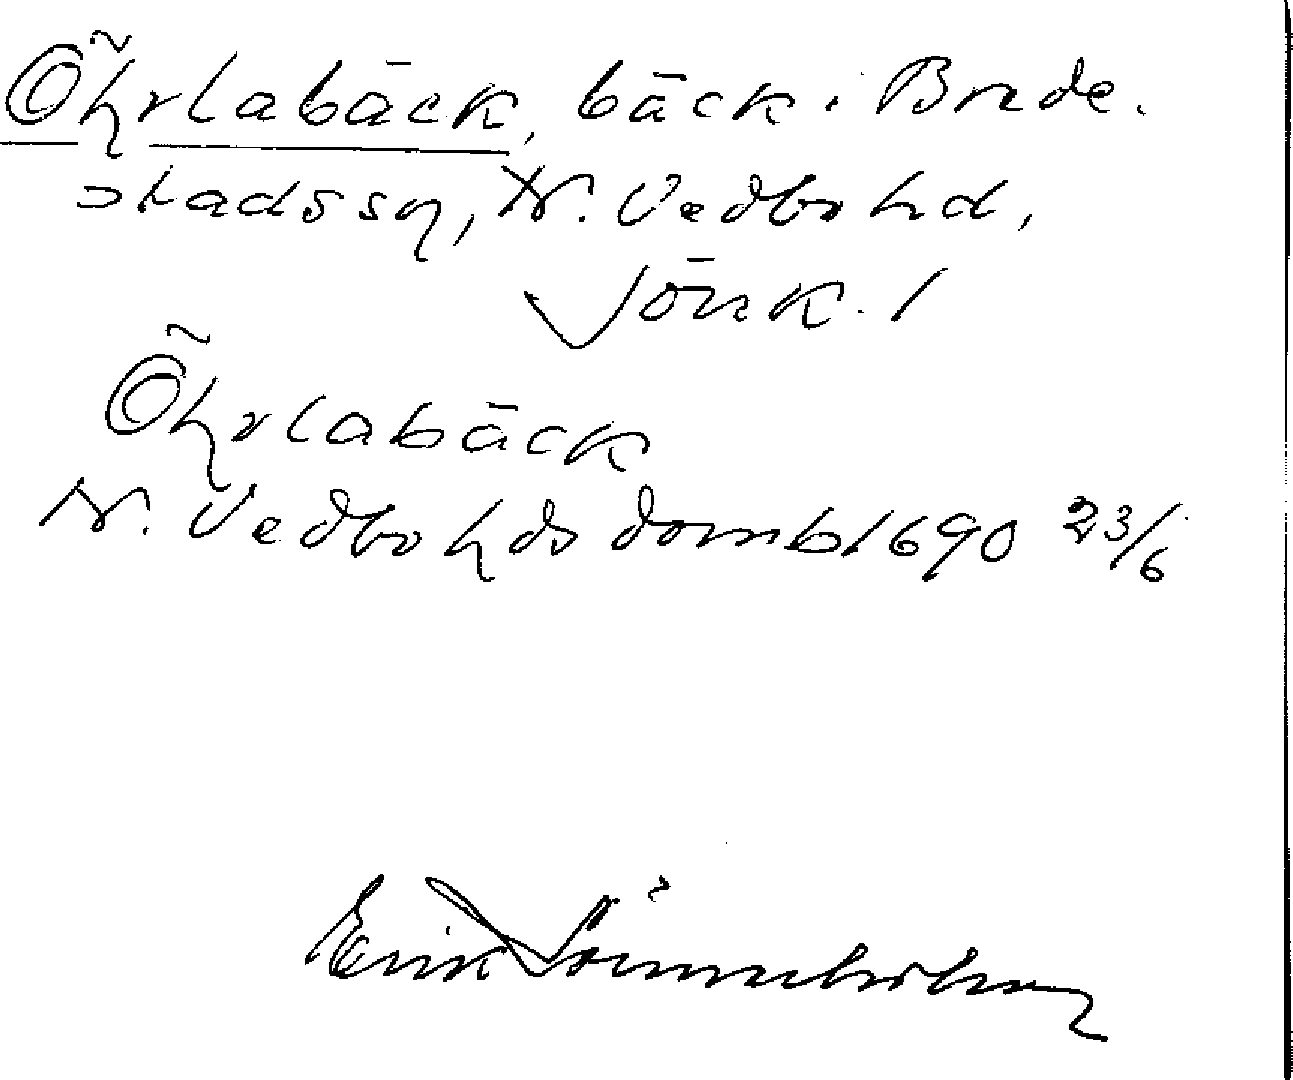 Öhrlabäck, bäck. Brede-
stads sn, N. Vedbo hd,
Jönk. l
Öhrlabäck
N. Vedbo hds domb 1690 23/6
Erik